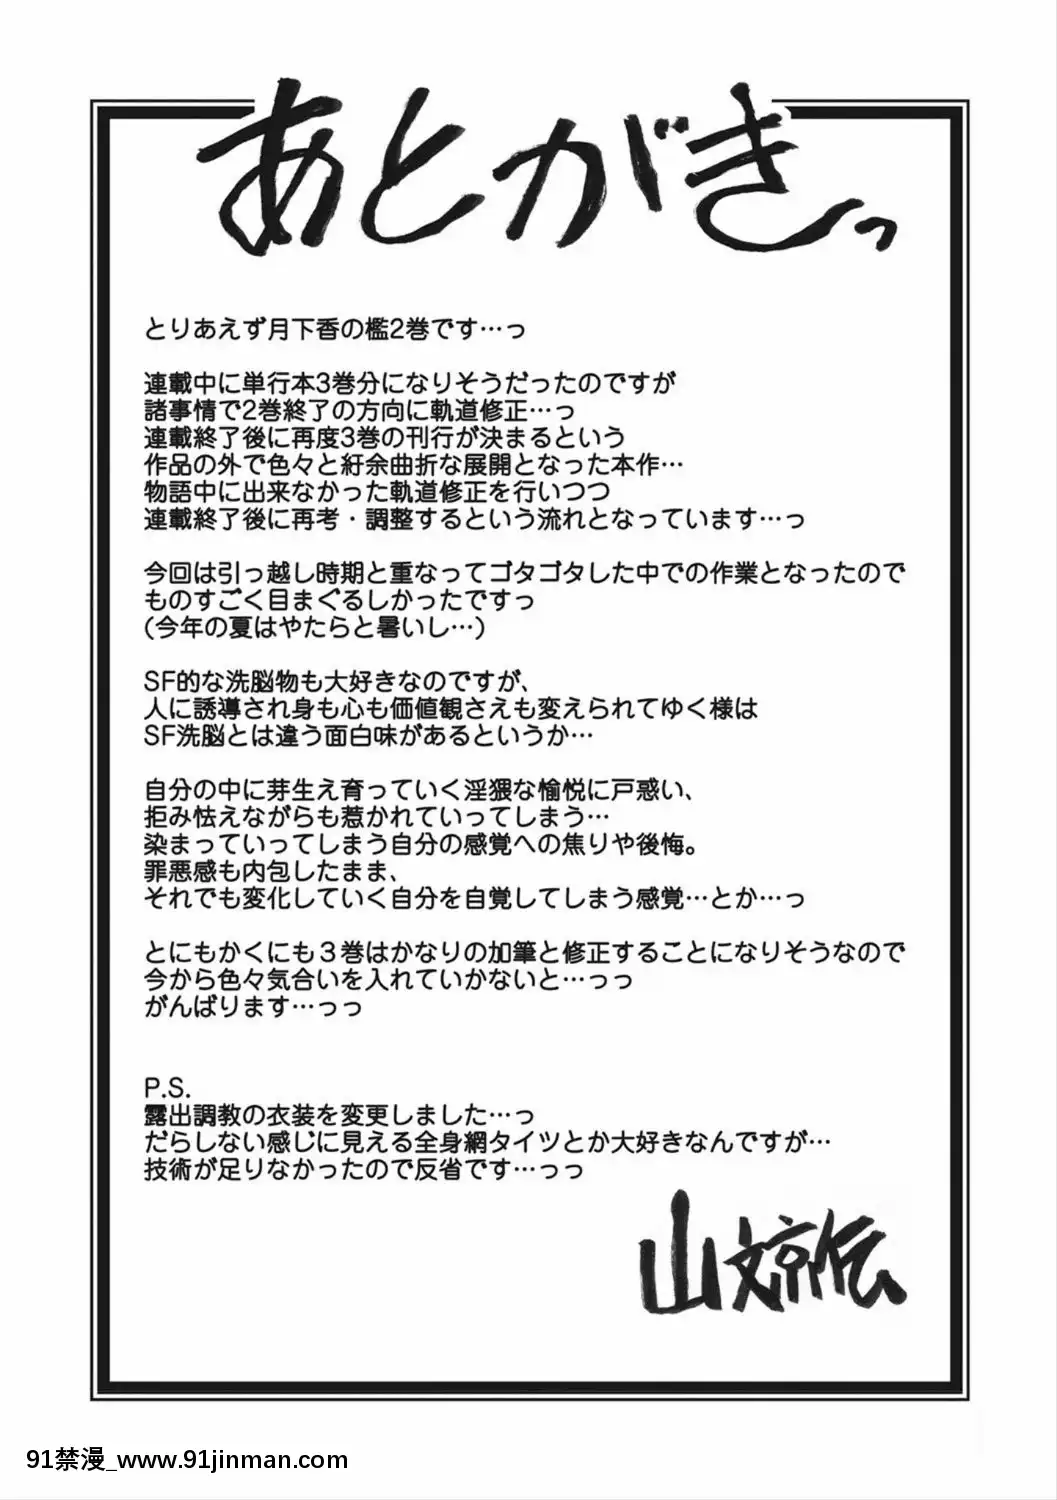 あとがきっ
とりあえず月下香の檻2巻です…っ
連載中に単行本3巻分になりそうだったのですが
諸事情で2巻終了の方向に軌道修正…っ
連載終了後に再度3巻の刊行が決まるという
作品の外で色々と紆余曲折な展開となった本作…
物語中に出来なかった軌道修正を行いつつ
連載終了後に再考・調整するという流れとなっています…っ
今回は引っ越し時期と重なってゴタゴタした中での作業となったので
ものすごく目まぐるしかったですっ
(今年の夏はやたらと暑いし…)
SF的な洗脳物も大好きなのですが、
人に誘導され身も心も価値観さえも変えられてゆく様は
SF洗脳とは違う面白味があるというか…
自分の中に芽生え育っていく淫猥な愉悦に戸惑い、
拒み怯えながらも惹かれていってしまう…
染まっていってしまう自分の感覚への焦りや後悔。
罪悪感も内包したまま、
それでも変化していく自分を自覚してしまう感覚…とか…っ
とにもかくにも３巻はかなりの加筆と修正することになりそうなので
今から色々気合いを入れていかないと…っっ
がんばります…っっ
P.S.
露出調教の衣装を変更しました…っ
だらしない感じに見える全身網タイツとか大好きなんですが…
技術が足りなかったので反省です…っっ
山文京伝
91禁漫_www.91jinman.com